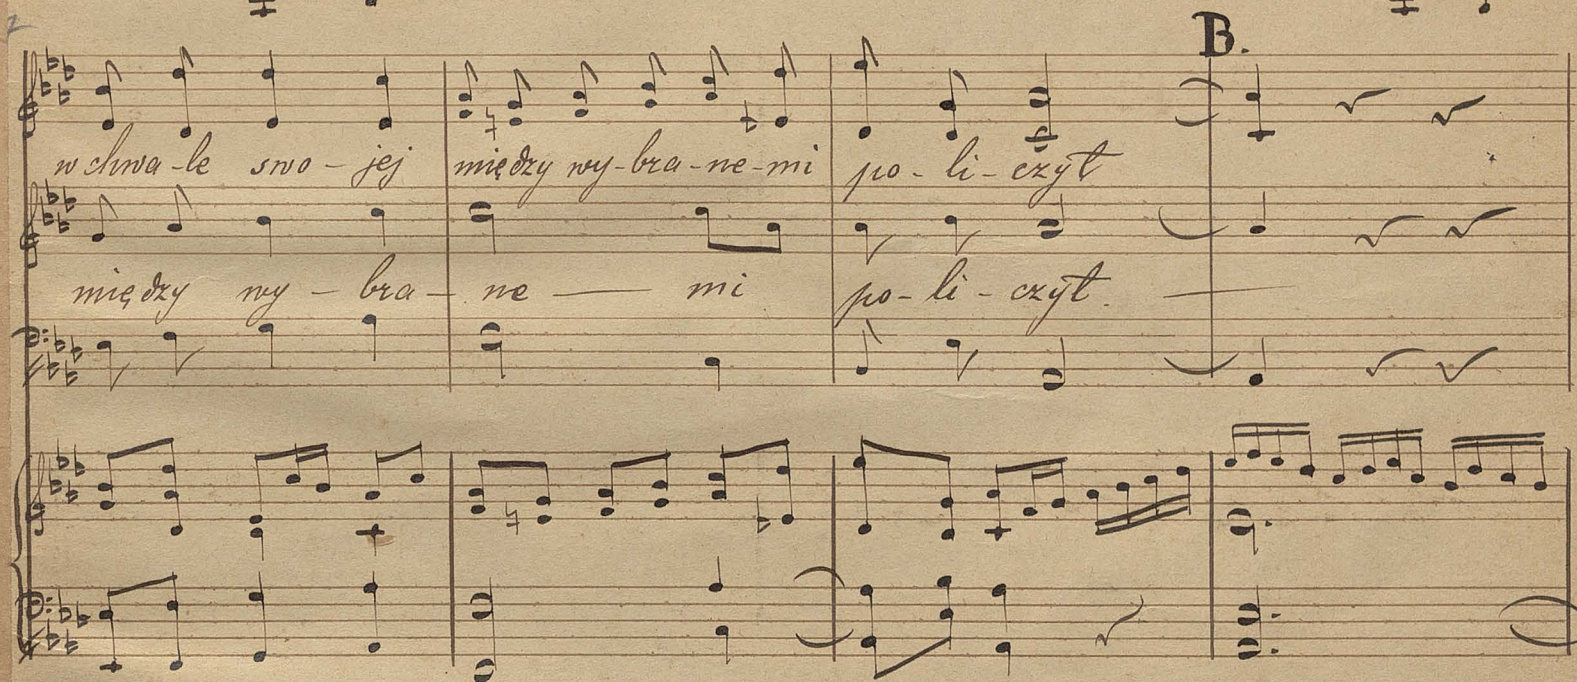 B.
w chwa-le swo-jej między wy-bra-ne-mi po-li-czył
między wy-bra-ne-mi po-li-czył.